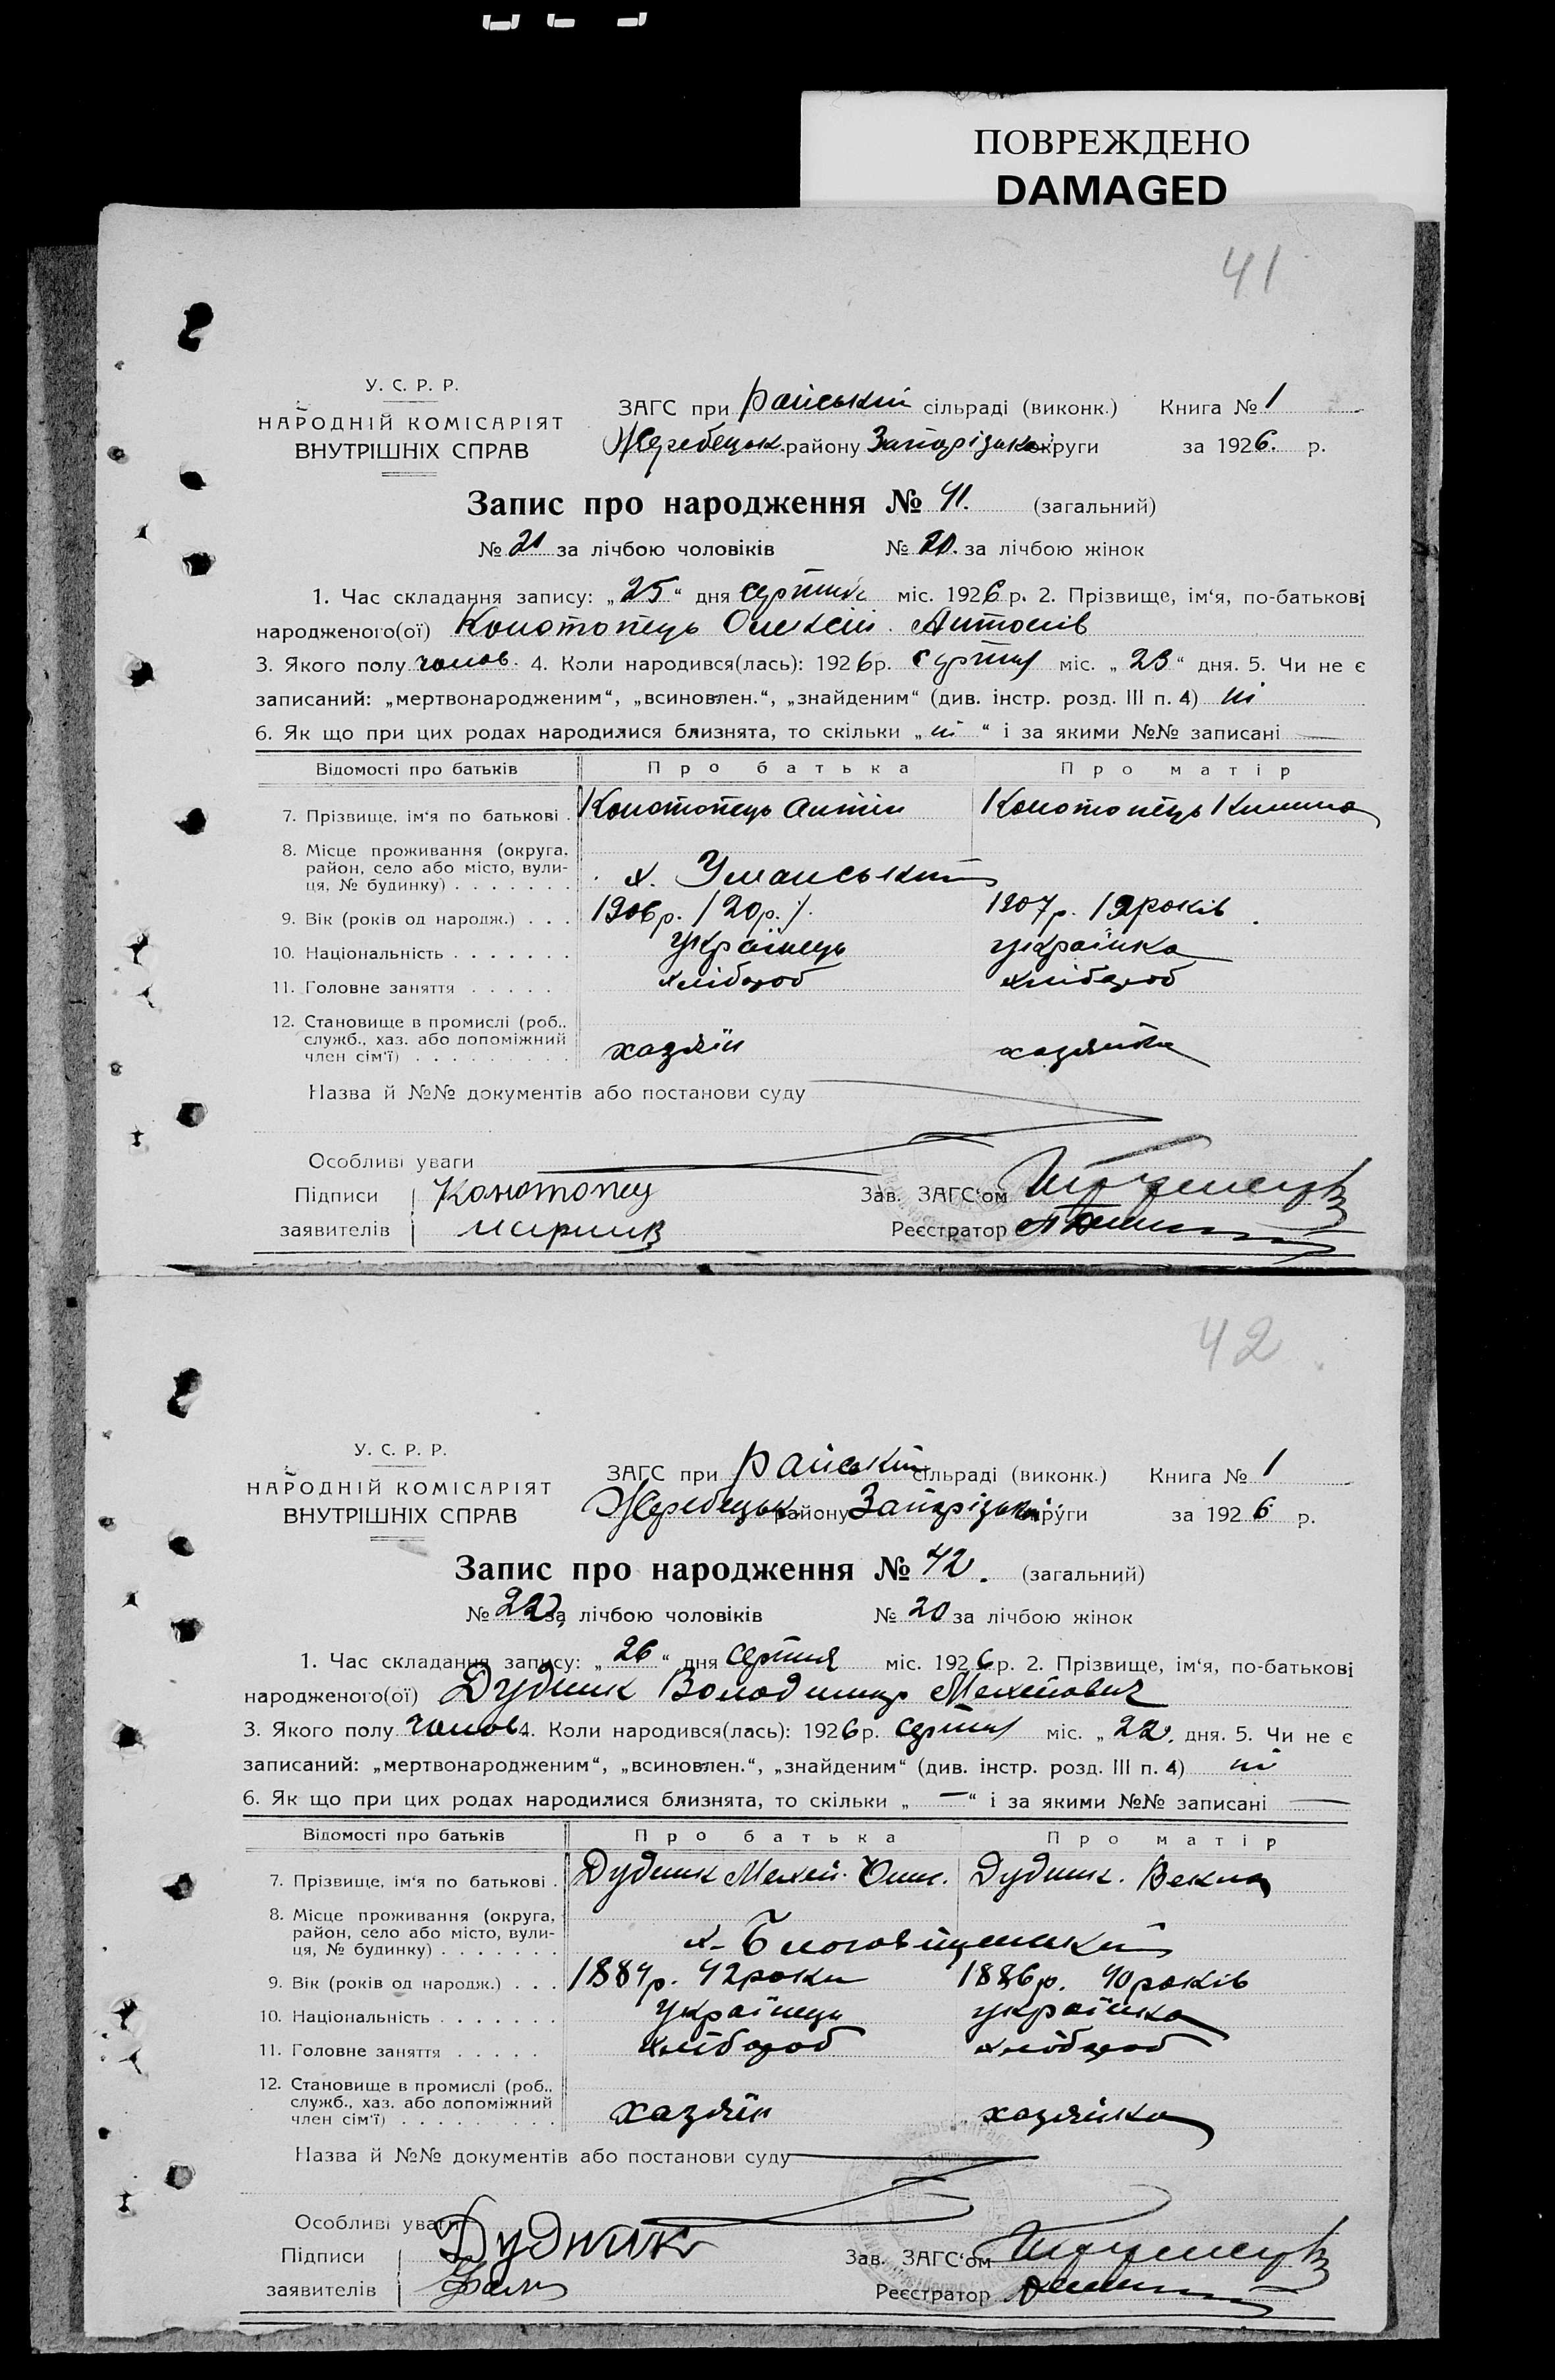 ПОВРЕЖДЕНО
DAMAGED
41
У. С. Р. Р.
НАРОДНІЙ КОМІСАРІЯТ
ВНУТРІШНІХ СПРАВ
ЗАГС при Райській сільраді (виконк.) Книга № 1
Жеребецьк. району Запорізької округи за 1926. р.
Запис про народження № 41. (загальний)
№ 21 за лічбою чоловіків № 20. за лічбою жінок
1. Час складання запису: „25“ дня серпня міс. 1926 р. 2. Прізвище, ім‘я, по-батькові
народженого(ої) Конотопець Олексій Антонів
3. Якого полу чолов. 4. Коли народився(лась): 1926 р. серпня міс. „23“ дня. 5. Чи не є
записаний: „мертвонародженим“, „всиновлен.“, „знайденим“ (див. інстр. розд. III п. 4) ні
6. Як що при цих родах народилися близнята, то скільки „ні“ і за якими №№ записані —
Відомості про батьків Про батька Про матір
7. Прізвище, ім‘я по батькові . Конотопець Антін Конотопець
8. Місце проживання (округа,
район, село або місто, вули-
ця, № будинку) . . . . . . . х. Уманський
9. Вік (років од народж.) . . . 1906 р. / 20 р. /. 1907 р. / років
10. Національність . . . . . . . українець українка
11. Головне заняття . . . . . хлібороб хлібороб
12. Становище в промислі (роб.,
служб., хаз. або допоміжний
член сім‘ї) . . . . . . . . . хазяїн хазяйка
Назва й №№ документів або постанови суду
Особливі уваги
Підписи Конотопец Зав. ЗАГС‘ом
заявителів Реєстратор
42
У. С. Р. Р.
НАРОДНІЙ КОМІСАРІЯТ
ВНУТРІШНІХ СПРАВ
ЗАГС при Райській сільраді (виконк.) Книга № 1
Жеребецьк. району Запорізької округи за 1926 р.
Запис про народження № 42. (загальний)
№ 22 за лічбою чоловіків № 20 за лічбою жінок
1. Час складання запису: „26“ дня серпня міс. 1926 р. 2. Прізвище, ім‘я, по-батькові
народженого(ої) Дудник Володимир
3. Якого полу чолов 4. Коли народився(лась): 1926 р. серпня міс. „22. дня. 5. Чи не є
записаний: „мертвонародженим“, „всиновлен.“, „знайденим“ (див. інстр. розд. III п. 4) ні
6. Як що при цих родах народилися близнята, то скільки „—“ і за якими №№ записані —
Відомості про батьків Про батька Про матір
7. Прізвище, ім‘я по батькові . Дудник Дудник. Векла
8. Місце проживання (округа,
район, село або місто, вули-
ця, № будинку) . . . . . . . х.
9. Вік (років од народж.) . . . 1884 р. 42 роки 1886 р. 40 років
10. Національність . . . . . . . українець українка
11. Головне заняття . . . . . хлібороб хлібороб
12. Становище в промислі (роб.,
служб., хаз. або допоміжний
член сім‘ї) . . . . . . . . . хазяїн хазяйка
Назва й №№ документів або постанови суду
Особливі уваги
Підписи Дудник Зав. ЗАГС‘ом
заявителів Реєстратор